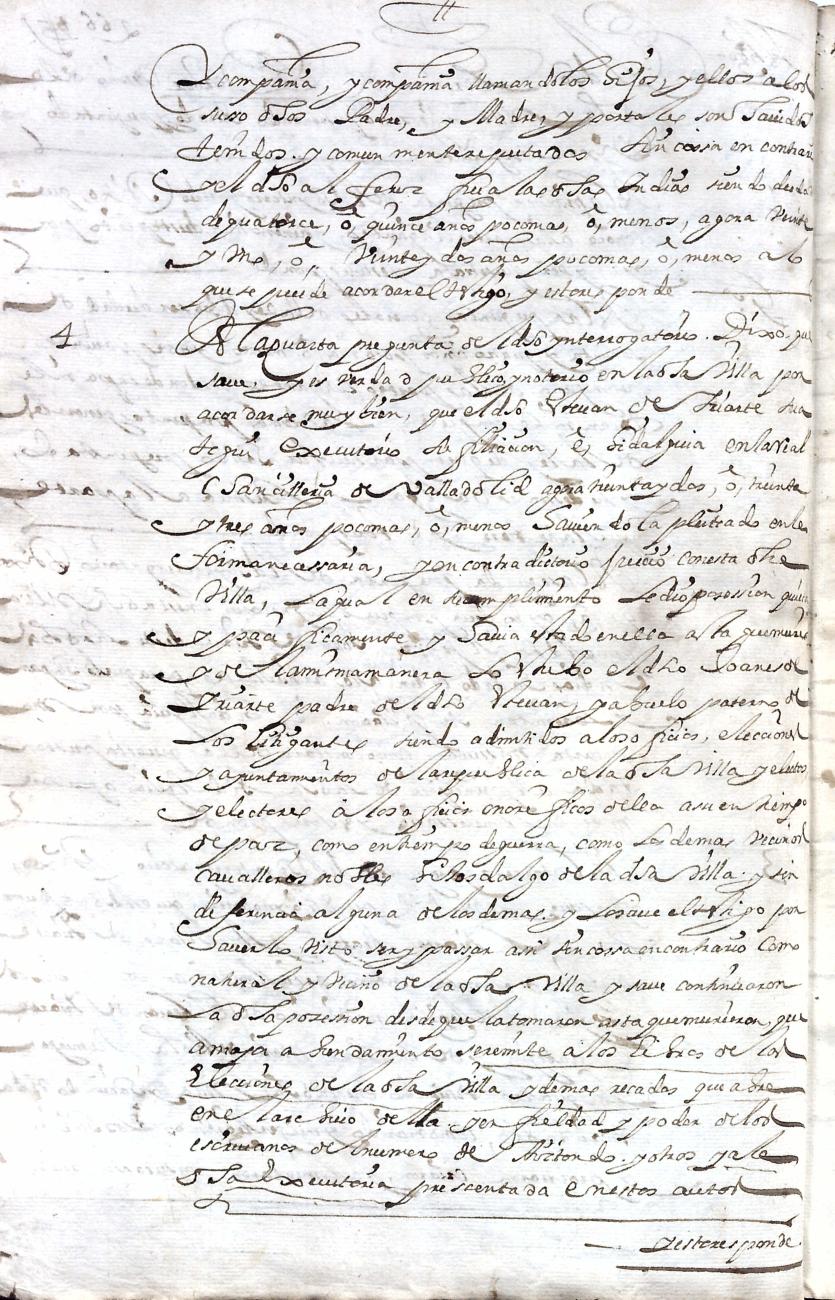 y compania, y compania llamandolos hijos, y ellos a los
suso dhos Padre, y Madre, y por tales son Tauidos
tenidos y comunmente reputados sin cossa en contrario
y el dho al ferez fue a las dhas Indias siendo de edad
de quatorce, ô, quince años poco mas, ô, menos, agora veinte
y un, ô, veinte y dos años poco mas, ô, menos a lo
que se puede acordar el testigo, y esto responde
4 A la quarta pregunta del dho ynterrogatorio. Dixo, que
saue, y es verdad publico, y notorio en la dha Villa por
acordarse muy bien, que el dho Esteuan de Yriarte
executorio de filiacion, è, hidalguia en la Real
Chancilleria de Valladolid agora treinta y dos, ô, treinta
y tres años poco mas, ô, menos hauiendola pleiteado en la
forma necessaria, y en contradictorio juicio con esta dha
Villa, La qual en su cumplimiento Le dio possession quieta
y pacificamente y hauia estado en ella asta que murio
y de la misma manera Lo estubo el dho Joanes de
Yriarte padre del dho Esteuan, y abuelo paterno de
Los litigantes siendo admitidos a los officios, elecciones
y ayuntamientos de la republica de la dha Villa y electos
y electores à los officios onorificos de ella asi en tiempo
de paz, como en tiempo de guerra, como los demas vecinos
caualleros nobles hijos dalgo de la dha Villa y sin
diferencia alguna de los demas, y Lo saue el testigo por
hauerlo visto ser y passar asi sin cossa en contrario Como
natural y vecino de la dha Villa y saue continuaron
La dha posession desde que la tomaron asta que murieron, que
a maior a bundamiento se remite a los Libros de las
Elecciones de la dha Villa y demas recados que abra
en el archiuo della y en fieldad y poder de los
escriuanos del numero de Hoztondo y otros y a la
dha Executoria presentada en estos autos
y esto responde